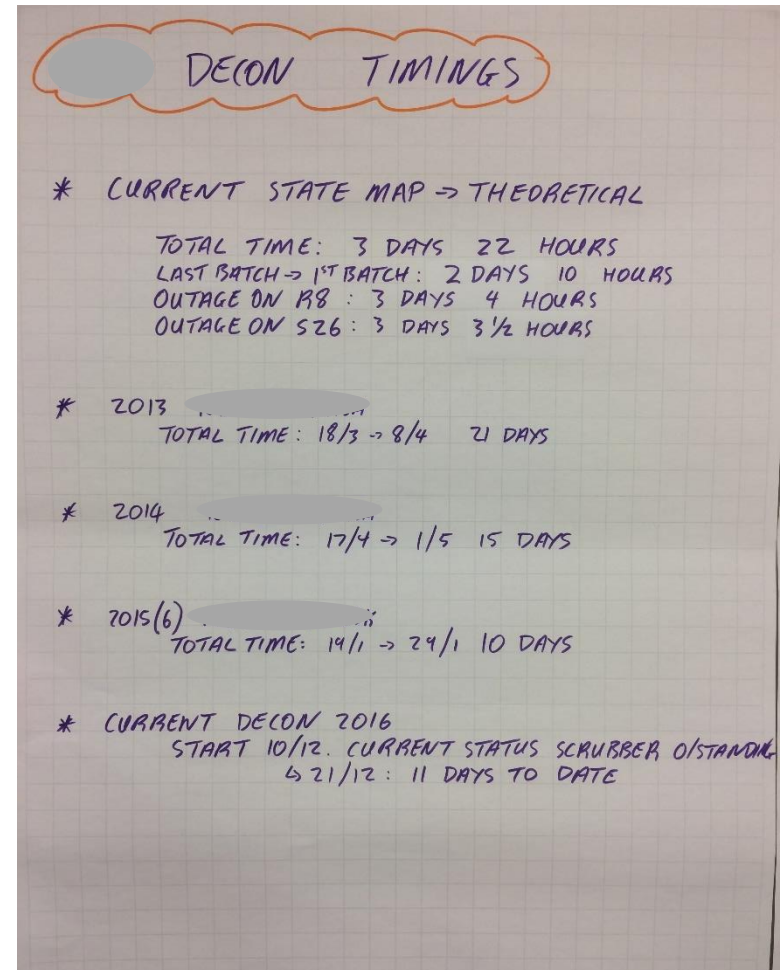 DECON TIMINGS
* CURRENT STATE MAP → THEORETICAL
TOTAL TIME: 3 DAYS 22 HOURS
LAST BATCH → 1ST BATCH: 2 DAYS 10 HOURS
OUTAGE ON R8: 3 DAYS 4 HOURS
OUTAGE ON S26: 3 DAYS 3 1/2 HOURS
* 2013
TOTAL TIME: 18/3 → 8/4 21 DAYS
* 2014
TOTAL TIME: 17/4 → 1/5 15 DAYS
* 2015(6)
TOTAL TIME: 14/1 → 24/1 10 DAYS
* CURRENT DECON 2016
START 10/12. CURRENT STATUS SCRUBBER O/STANDING
↳ 21/12: 11 DAYS TO DATE